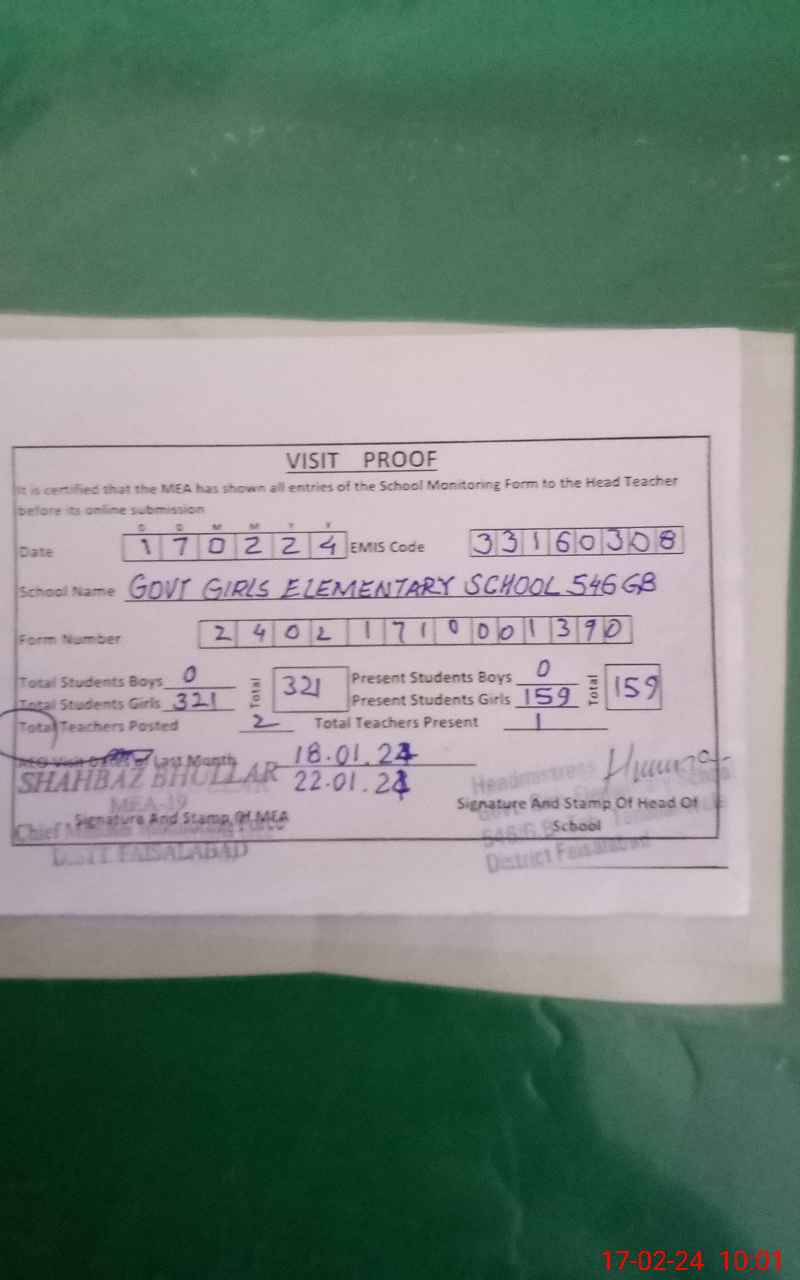 VISIT PROOF
It is certified that the MEA has shown all entries of the School Monitoring Form to the Head Teacher
before its online submission
D D M M Y Y
Date 1 7 0 2 2 4 EMIS Code 3 3 1 6 0 3 0 8
School Name GOVT GIRLS ELEMENTARY SCHOOL 546 GB
Form Number 2 4 0 2 1 7 1 0 0 0 1 3 9 0
Total Students Boys 0 Total 321 Present Students Boys 0 Total 159
Total Students Girls 321 Present Students Girls 159
Total Teachers Posted 2 Total Teachers Present 1
AEO Visit Dates of Last Month 18.01.24
22.01.24
SHAHBAZ BHULLAR
MEA-19
Signature And Stamp Of MEA
Chief
DISTT. FAISALABAD
Headmistress
Signature And Stamp Of Head Of
School
District Faisalabad
17-02-24 10:01